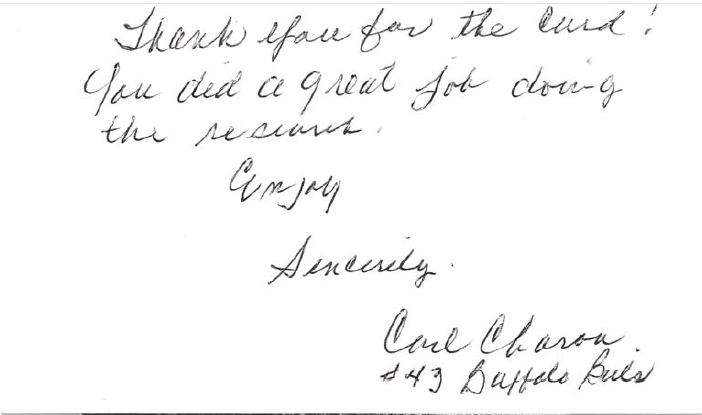 Thank you for the card!
You did a great job doing
the research.
Enjoy
Sincerely.
Carl Charon
#43 Buffalo Bills